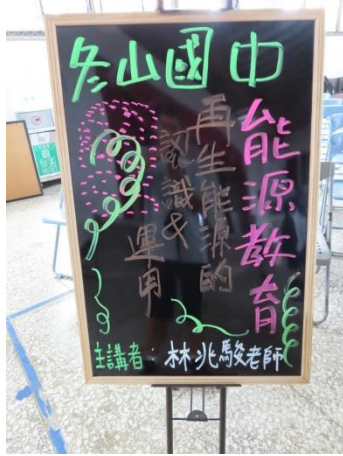 冬山國中
能源教育
再生能源的
認識&
運用
主講者：林兆駿老師